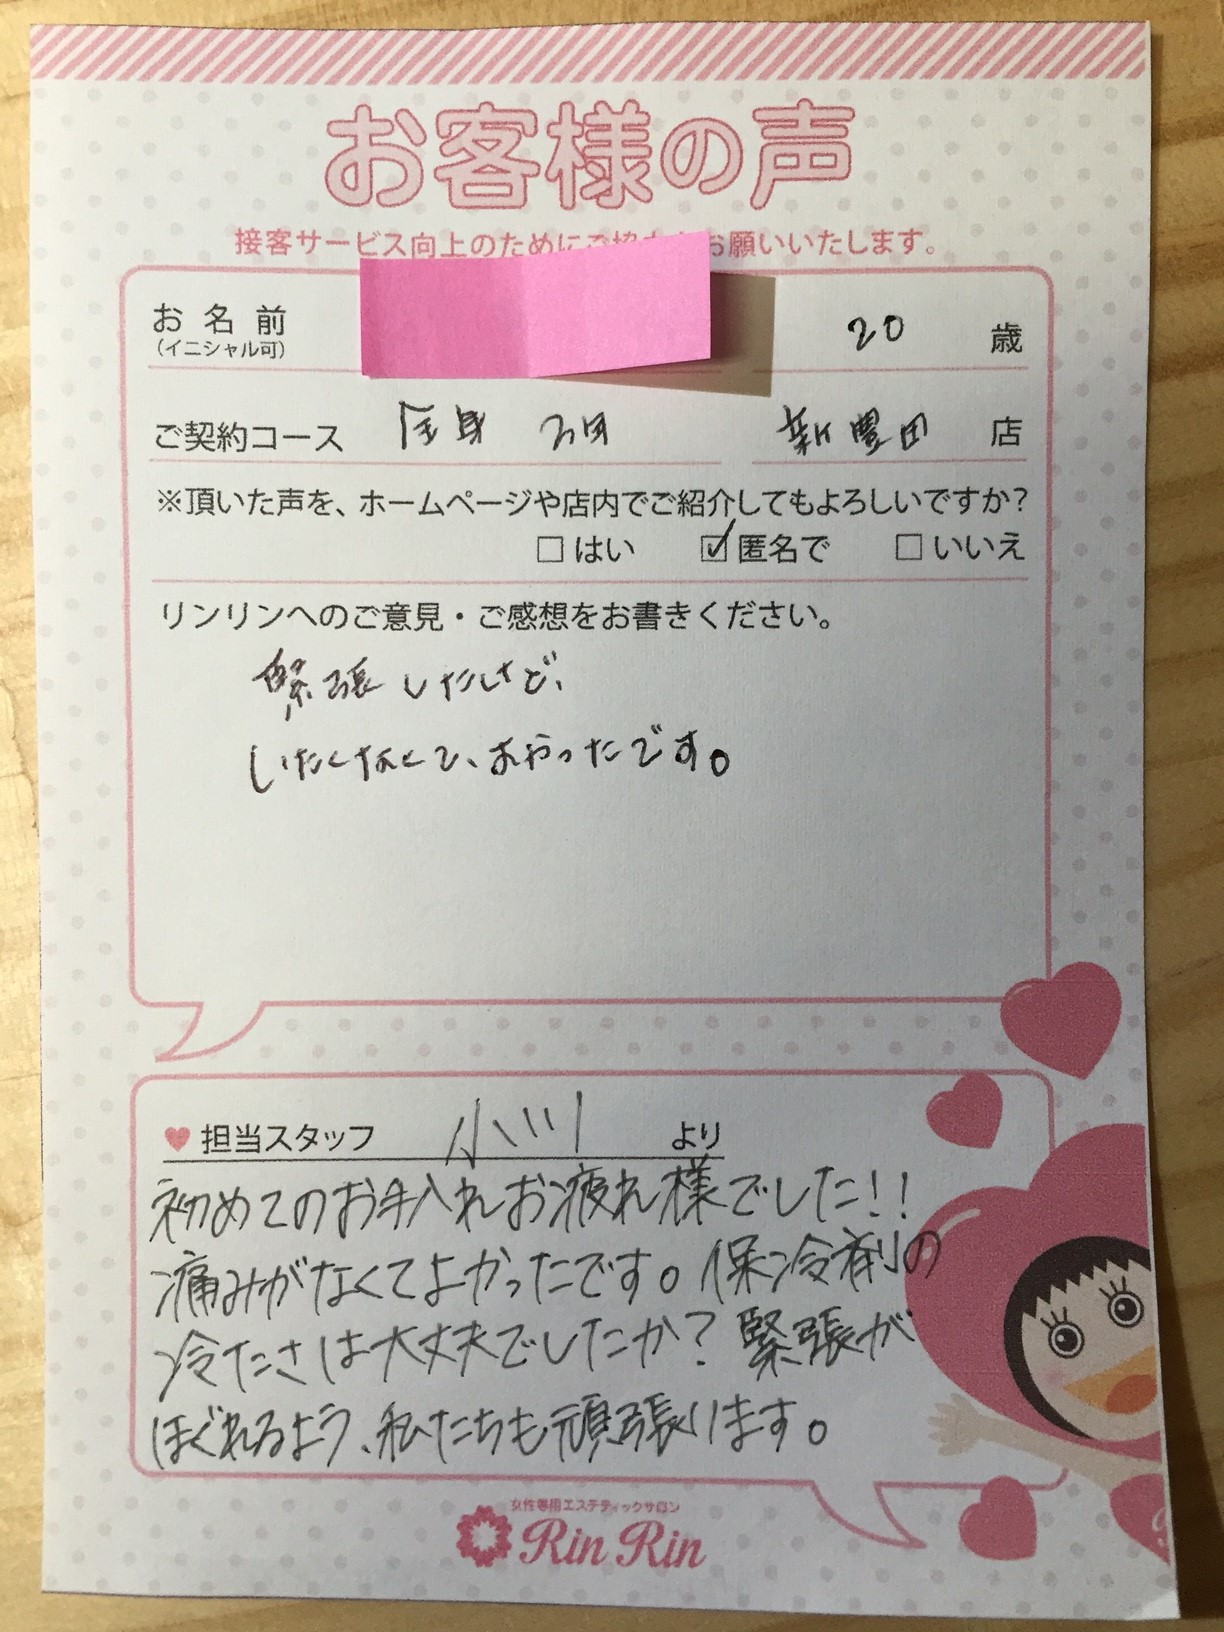 お客様の声
接客サービス向上のためにご協力をお願いいたします。
お名前
(イニシャル可)
20 歳
ご契約コース 全身 新豊田 店
※頂いた声を、ホームページや店内でご紹介してもよろしいですか?
はい 匿名で いいえ
リンリンへのご意見・ご感想をお書きください。
緊張したけど、
いたくなくて、よかったです。
担当スタッフ 小川 より
初めてのお手入れお疲れ様でした!!
痛みがなくてよかったです。保冷剤の
冷たさは大丈夫でしたか?緊張が
ほぐれるよう、私たちも頑張ります。
女性専用エステティックサロン
Rin Rin